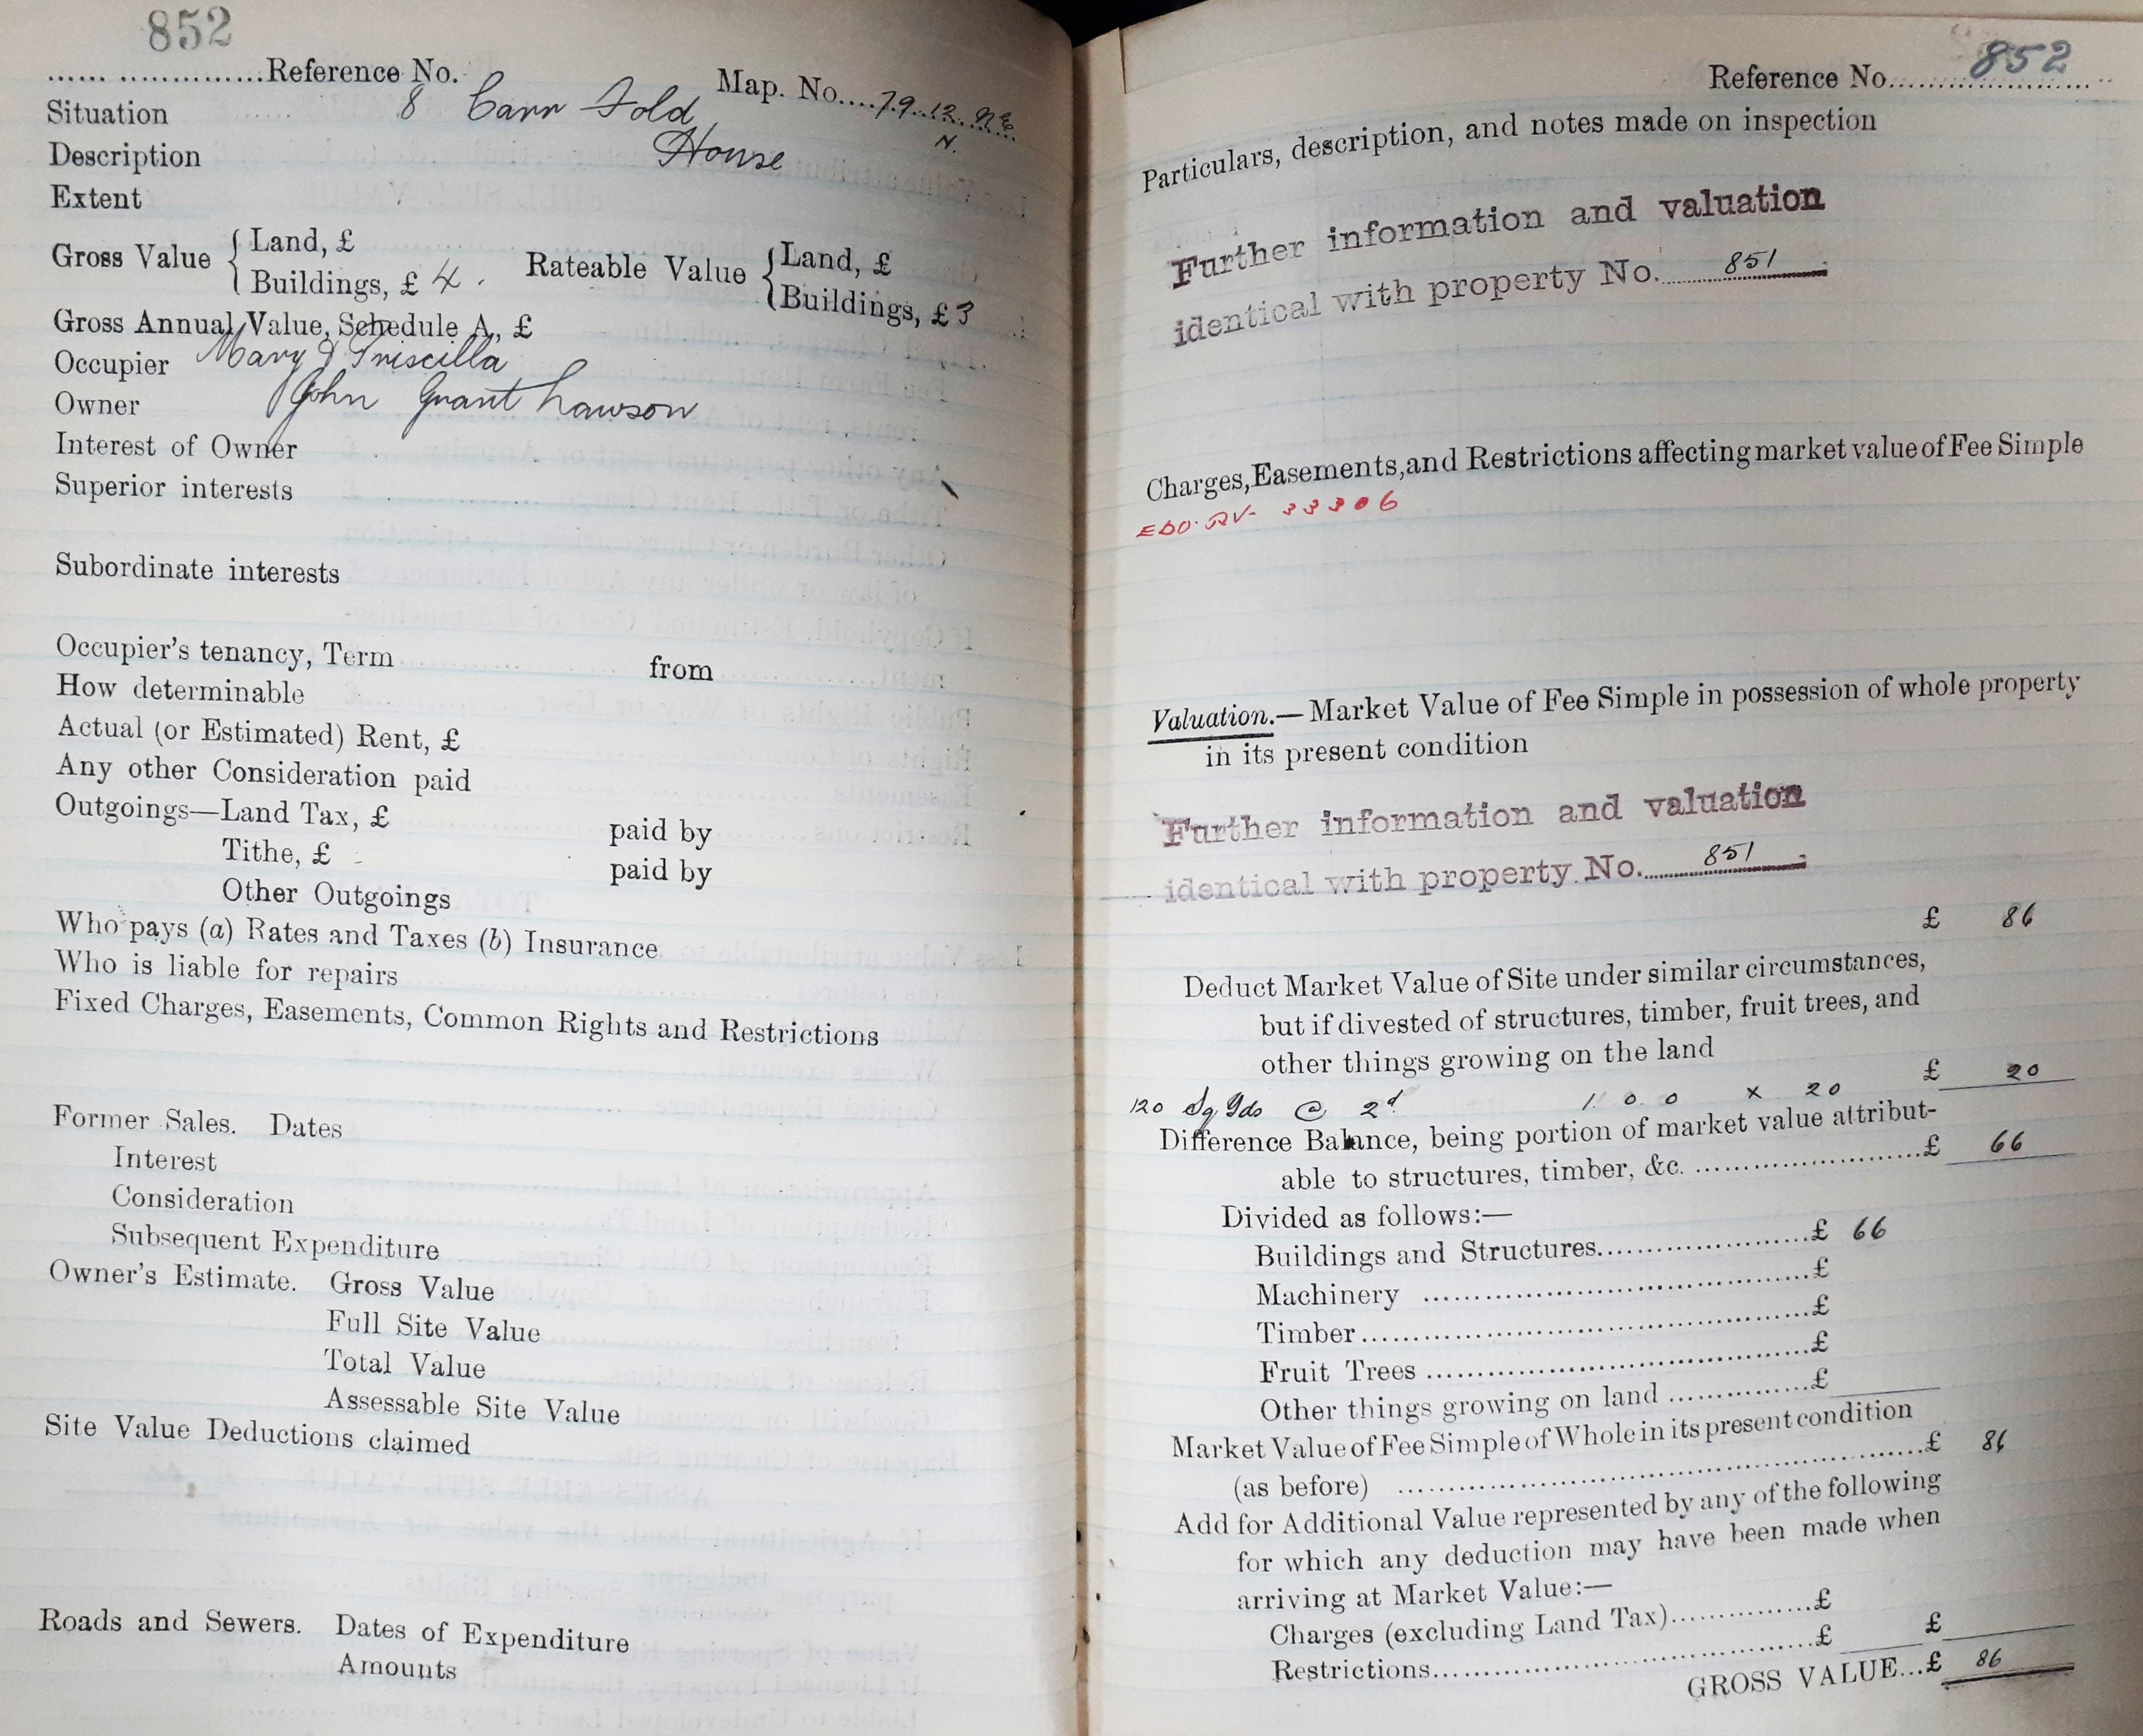 852
Reference No. Map. No. 79.12.NE.
N.
Situation 8 Carr Fold
Description House
Extent
Gross Value { Land, £ Rateable Value { Land, £
Buildings, £ 4. Buildings, £ 3
Gross Annual Value, Schedule A, £
Occupier Mary J Priscilla
Owner John Grant Lawson
Interest of Owner
Superior interests
Subordinate interests
Occupier's tenancy, Term from
How determinable
Actual (or Estimated) Rent, £
Any other Consideration paid
Outgoings—Land Tax, £ paid by
Tithe, £ paid by
Other Outgoings
Who pays (a) Rates and Taxes (b) Insurance
Who is liable for repairs
Fixed Charges, Easements, Common Rights and Restrictions
Former Sales. Dates
Interest
Consideration
Subsequent Expenditure
Owner's Estimate. Gross Value
Full Site Value
Total Value
Assessable Site Value
Site Value Deductions claimed
Roads and Sewers. Dates of Expenditure
Amounts
Reference No. 852
Particulars, description, and notes made on inspection
Further information and valuation
identical with property No. 851
Charges, Easements, and Restrictions affecting market value of Fee Simple
EDO. RV- 33306
Valuation.—Market Value of Fee Simple in possession of whole property
in its present condition
Further information and valuation
identical with property No. 851
£ 86
Deduct Market Value of Site under similar circumstances,
but if divested of structures, timber, fruit trees, and
other things growing on the land £ 20
120 Sq Yds @ 2d 1. 0. 0 x 20
Difference Balance, being portion of market value attribut-
able to structures, timber, &c. £ 66
Divided as follows:—
Buildings and Structures £ 66
Machinery £
Timber £
Fruit Trees £
Other things growing on land £
Market Value of Fee Simple of Whole in its present condition
(as before) £ 86
Add for Additional Value represented by any of the following
for which any deduction may have been made when
arriving at Market Value:—
Charges (excluding Land Tax) £
Restrictions £ £
GROSS VALUE...£ 86